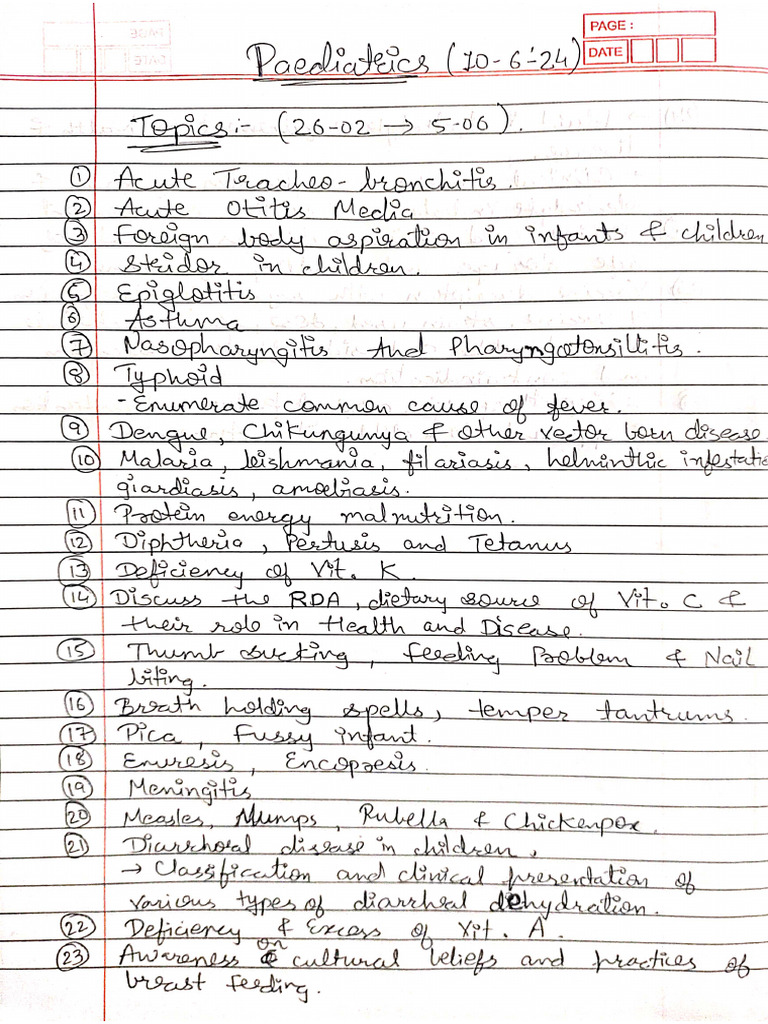 PAGE :
DATE
Paediatrics (10-6-24)
Topics :- (26-02 → 5-06).
① Acute Tracheo-bronchitis.
② Acute Otitis Media
③ Foreign body aspiration in infants & children
④ Stridor in children.
⑤ Epiglotitis
⑥ Asthma
⑦ Nasopharyngitis And Pharyngotonsillitis.
⑧ Typhoid
- Enumerate common cause of fever.
⑨ Dengue, Chikungunya & other vector born disease
⑩ Malaria, leishmania, filariasis, helminthic infestatio
giardiasis, amoebiasis.
⑪ Protein energy malnutrition.
⑫ Diphtheria, Pertusis and Tetanus
⑬ Deficiency of Vit. K.
⑭ Discuss the RDA, dietary source of Vit. C &
their role in Health and Disease.
⑮ Thumb sucking, feeding Problem & Nail
biting.
⑯ Breath holding spells, temper tantrums.
⑰ Pica, Fussy infant.
⑱ Enuresis, Encopresis.
⑲ Meningitis
⑳ Measles, Mumps, Rubella & Chickenpox.
㉑ Diarrhoeal disease in children,
→ Classification and clinical presentation of
various types of diarrheal dehydration.
㉒ Deficiency & Excess of Vit. A.
㉓ Awareness on cultural beliefs and practices of
breast feeding.